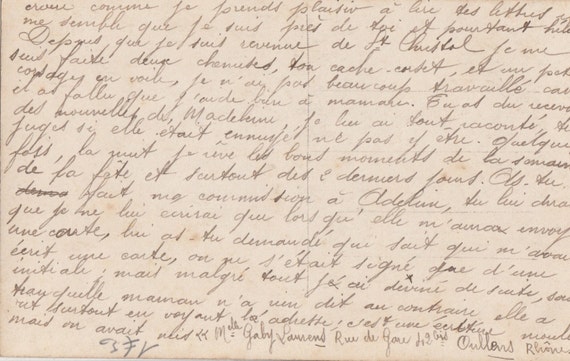 croire comme je prends plaisir à lire des lettres
me semble que je suis près de toi et pourtant
Depuis que je suis revenue de St Christol je me
suis faite deux chemises, ton cache-corset, et un petit
corsage en voile, je n'ai pas beaucoup travaillé car
il a fallu que j'aide bien à maman. Tu as du recevoir
des nouvelles de Madeleine, je lui ai tout raconté, tu
juges si elle était ennuyée de ne pas y être. Quelques
fois, la nuit je rêve les bons moments de la semaine
de la fête et surtout des 2 derniers jours. As-tu
fait ma commission à tu lui diras
que je ne lui écrirai que lorsqu'elle m'aura envoyé
une carte, lui as tu demandé qui sait qui m'avait
écrit une carte, on ne s'était signé que d'une
initiale; mais malgré tout je x ai deviné de suite, sois
tranquille maman n'a rien dit au contraire elle a
rit surtout en voyant la adresse; c'est une écriture moulée
mais on avait mis "Melle Gaby Laurens Rue de Gare 42 bis Oullins Rhône